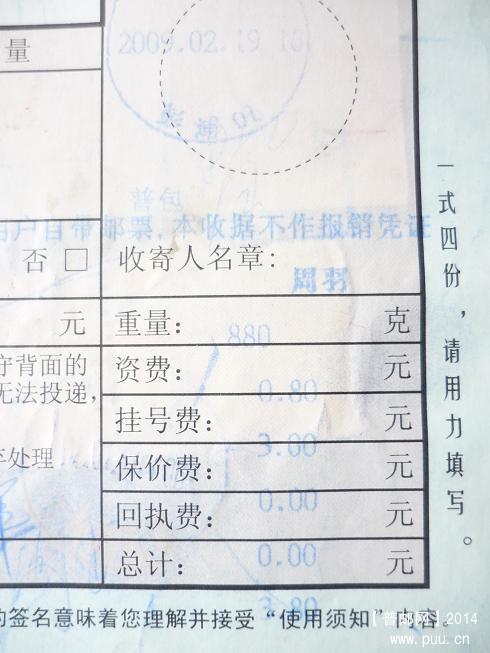 量
2009.02.19 16
普包
用户自带邮票,本收据不作报销凭证
否 □ 收寄人名章:
周羽
元 重量: 880 克
守背面的
资费: 0.80 元
无法投递,
挂号费: 3.00 元
弃处理
保价费: 0.00 元
回执费: 0.00 元
总计: 3.80 元
的签名意味着您理解并接受“使用须知”内容。
一式四份,请用力填写。
【普邮网】2014
www.puu.cn